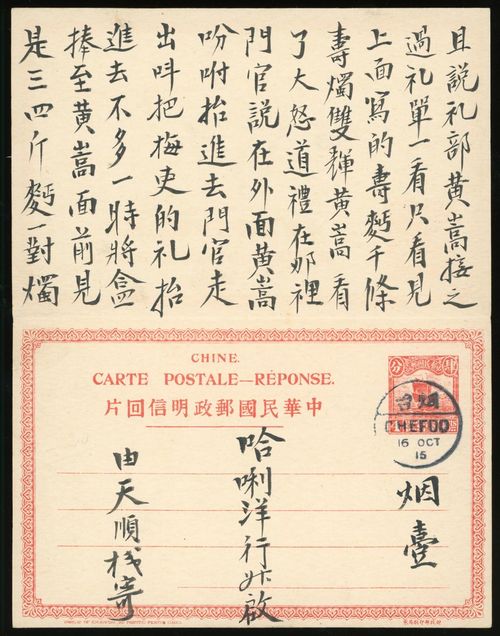 且說礼部黃嵩接之
過礼單一看只看見
上面寫的壽麪千條
壽燭雙輝黃嵩看
了大怒道禮在那裡
門官說在外面黃嵩
吩咐抬進去門官走
出呌把梅吏的礼抬
進去不多一時將盒
捧至黃嵩面前見
是三四斤麪一對燭
CHINE.
CARTE POSTALE—RÉPONSE.
中華民國郵政明信回片
烟台
CHEFOO
16 OCT
15
烟臺
哈唎洋行升啟
由天順棧寄